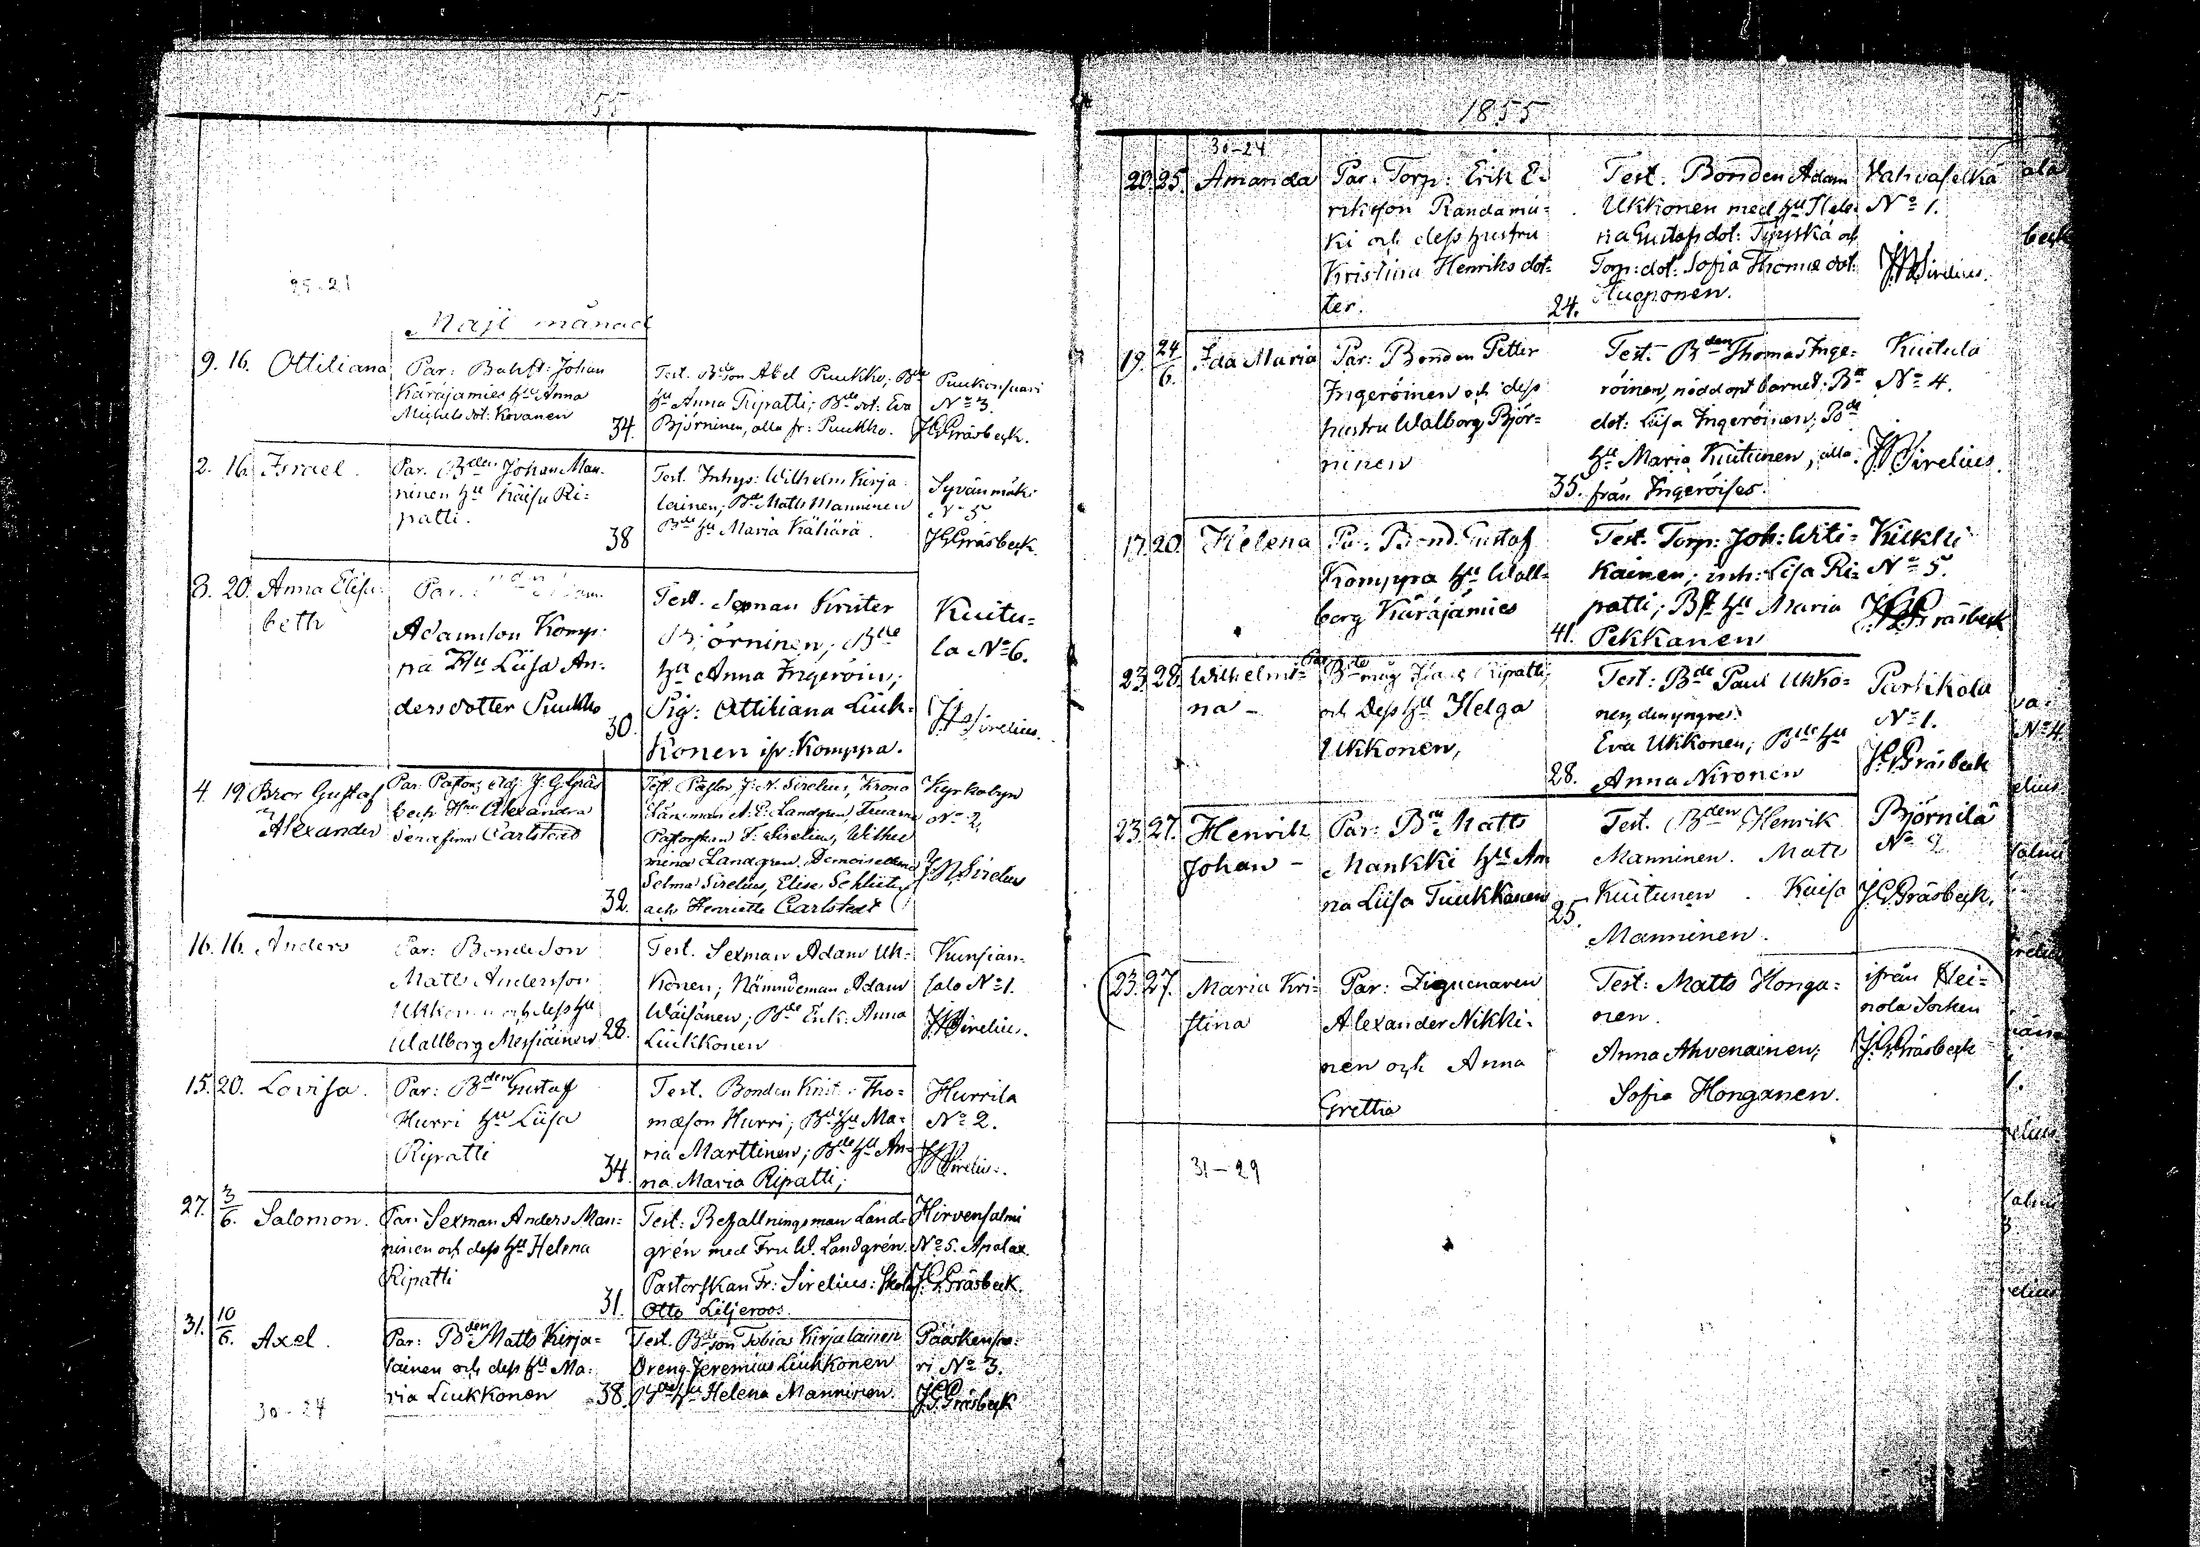 1855
25-21
Maji månad
9. 16. Ottiliana
Par: Bahft: Johan
Käräjamies Hu Anna
Michelsdot: Kovanen
34.
Test. Bdeson Abel Puukko; Bde
Hu Anna Ripatti; Bdedot: Eva
Björninen, alla fr: Puukko.
Puukonsaari
No 3.
J.G.Gräsbeck.
2. 16. Israel.
Par. Bden Johan Man-
ninen Hu Kaisa Ri-
patti.
38
Test. Inhys: Wilhelm Kirja-
lainen; Bde Matts Manninen
Bde Hu Maria Kähärä.
Syvänmäki
No 5
J.G.Gräsbeck.
3. 20. Anna Elisa-
beth
Par.
Adamsson Komp-
pa Hu Liisa An-
dersdotter Puukko
30.
Test. Sexman Krister
Björninen; Bde
Hu Anna Ingeröin;
Pig: Ottiliana Liuk-
konen ifr: Komppa.
Kuitu-
la No 6.
J.N.Sirelius.
4. 19. Bror Gustaf
Alexander
Par. Pastors Adj J. G. Gräs
beck Hu Alexandra
Serafina Carlstedt
32.
Test. Pastor J. N. Sirelius, Krono
Länsman A. E. Landgren, Fruarna
Pastorskan F. Sirelius, Wilhel
mina Landgren, Demoisellerna
Selma Sirelius, Elise Schlüter
och Henriette Carlstedt
Kyrkobyn
No 2,
J.N.Sirelius
16. 16. Anders
Par: Bondeson
Matts Andersson
Ukkonen och dess Hu
Wallborg Messiäinen
28.
Test. Sexman Adam Uk-
konen; Nämndeman Adam
Wäisänen; Bde Enk: Anna
Liukkonen
Kunsian-
salo No 1.
J.N.Sirelius.
15. 20. Lovisa.
Par: Bden Gustaf
Hurri Hu Liisa
Ripatti
34.
Test. Bonden Krist: Tho-
mæson Hurri; Bde Hu Ma-
ria Marttinen; Bde Hu An-
na Maria Ripatti;
Hurrila
No 2.
J.N.Sirelius.
27. 3/6. Salomon.
Par: Sexman Anders Man-
ninen och dess Hu Helena
Ripatti
31.
Test: Befallningsman Land-
grén med Fru W. Landgrén.
Pastorskan Fr: Sirelius: Skol
Otto Liljeroos.
Hirvensalmi
No 5. Apalax.
J.G.Gräsbeck.
31. 10/6. Axel.
Par: Bden Matts Kirja-
lainen och dess Hu Ma-
ria Liukkonen
38.
Test. Bdeson Tobias Kirjalainen
Dreng Jeremias Liukkonen
Bde Hu Helena Manninen.
Pääskynsaa-
ri No 3.
J.G.Gräsbeck
30-24
1855
30-24
20. 25. Amanda
Par. Torp: Erik E-
riksson Randamä-
ki och dess hustru
Kristina Henriksdot-
ter.
24.
Test. Bonden Adam
Ukkonen med Hu Hele-
na Gustafsdot: Tyrskä och
Torp: dot: Sofia Thomædot:
Huopponen.
Vahvaselkä
No 1.
J.N.Sirelius.
19. 24/6. Ida Maria
Par: Bonden Petter
Ingeröinen och dess
hustru Walborg Björ-
ninen
35.
Test. Bden Thomas Inge-
röinen, näddöpt barnet; Bde
dot: Liisa Ingeröinen; Bde
Hu Maria Kuitunen, alla
från Ingeröises.
Kuitula
No 4.
J.N.Sirelius.
17. 20. Helena
Par. Bond. Gustaf
Komppa Hu Wall-
borg Käräjämies
41.
Test. Torp: Joh: Witi-
kainen; inh: Lisa Ri-
patti; Bde Hu Maria
Pekkanen
Kukkli
No 5.
J.G.Gräsbeck
23. 28. Wilhelmi-
na -
Par Bde måg Ripatti;
och Dess Hu Helga
Ukkonen,
28.
Test: Bde Paul Ukko-
nen den yngre.
Eva Ukkonen; Bde Hu
Anna Nironen
Parkikola
No 1.
J.G.Gräsbeck
23. 27. Henrik
Johan -
Par: Bde Matts
Mankki Hu An
na Liisa Tuukkanen
25.
Test. Bden Henrik
Manninen. Matts
Kuitunen. Kaisa
Manninen.
Björnilä
No 2
J.G.Gräsbeck.
23. 27. Maria Kri-
stina
Par: Ziguenaren
Alexander Nikki-
nen och Anna
Gretha
Test: Matts Honga-
nen.
Anna Ahvenainen;
Sofia Honganen.
ifrån Hei-
nola Socken
J.G.Gräsbeck
31-29